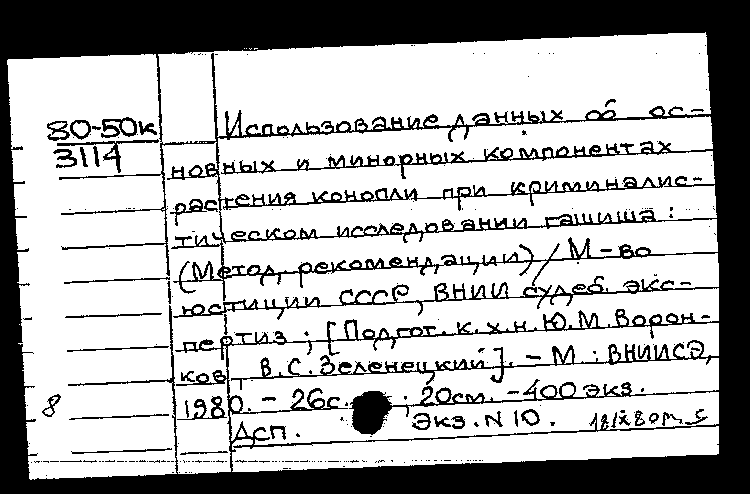 80-50к
3114
Использование данных об ос-
новных и минорных компонентах
растения конопли при криминалис-
тическом исследовании гашиша:
(Метод. рекомендации) / М-во
юстиции СССР, ВНИИ судеб. экс-
пертиз; [Подгот. к.х.н. Ю.М. Ворон-
ков, В.С. Зеленецкий]. - М: ВНИИСЭ,
8 1980. - 26с. ; 20см. - 400 экз.
Дсп. Экз. N 10.